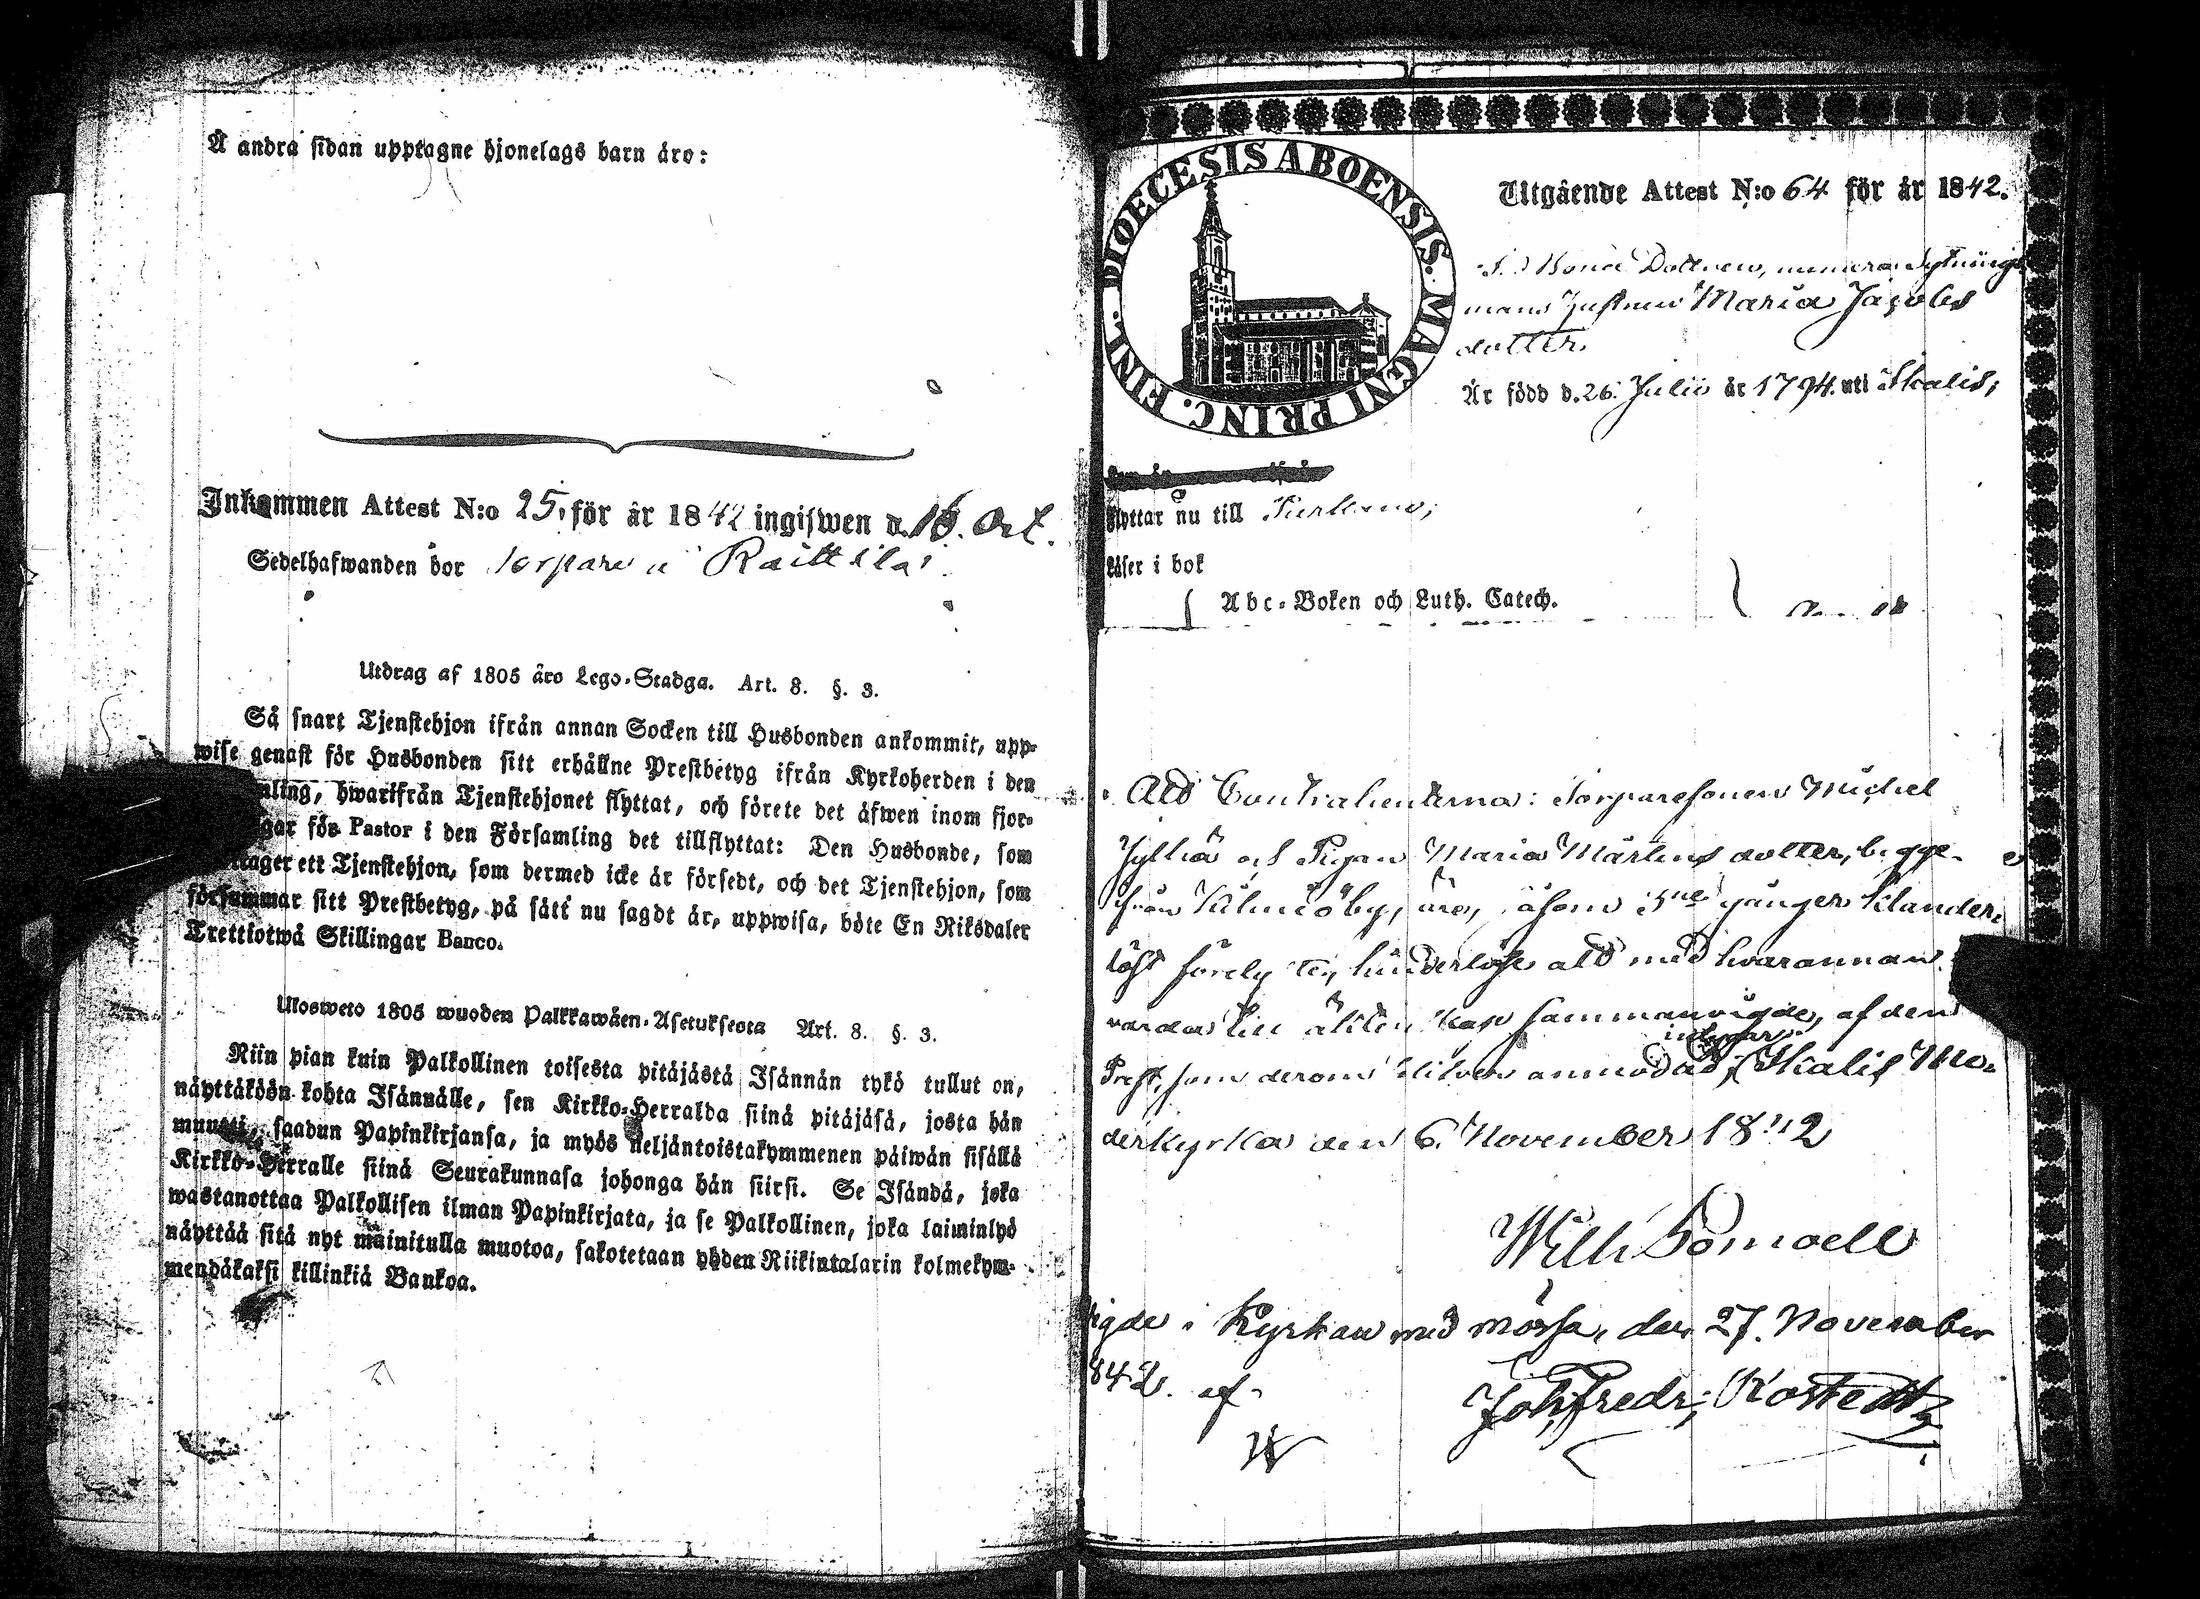 Å andra sidan upptagne hjonelags barn äro:
Inkommen Attest N:o 25, för år 1842 ingifwen d. 16. Oct.
Sedelhafwanden bor Torpare i Raittila
Utdrag af 1805 års Lego-Stadga. Art. 8. §. 3.
Så snart Tjenstehjon ifrån annan Socken till Husbonden ankommit, upp-
wise genast för Husbonden sitt erhållne Prestbetyg ifrån Kyrkoherden i den
mling, hwarifrån Tjenstehjonet flyttat, och förete det äfwen inom fjor-
gar för Pastor i den Församling det tillflyttat: Den Husbonde, som
tager ett Tjenstehjon, som dermed icke är försedt, och det Tjenstehjon, som
försummar sitt Prestbetyg, på sätt nu sagdt är, uppwisa, böte En Riksdaler
Trettiotwå Skillingar Banco.
Ulosweto 1805 wuoden Palkkawäen-Asetuksesta Art. 8. §. 3.
Niin pian kuin Palkollinen toisesta pitäjästä Isännän tykö tullut on,
näyttäköön kohta Isännälle, sen Kirkko-Herralda siinä pitäjäsä, josta hän
muutti, saadun Papinkirjansa, ja myös neljäntoistakymmenen päiwän sisällä
Kirkko-Herralle siinä Seurakunnasa johonga hän siirsi. Se Isändä, joka
wastanottaa Palkollisen ilman Papinkirjata, ja se Palkollinen, joka laiminlyö
näyttää sitä nyt mainitulla muotoa, sakotetaan yhden Riikintalarin kolmekym-
mendäkaksi killinkiä Bankoa.
DIOECESIS ABOENSIS. MAGNI PRINC. FINL.
Utgående Attest N:o 64 för år 1842.
Dottren, numera Sytnings
mans hustrun Maria Jacobs
dotter
Är född d. 26. Julii år 1794. uti Ikalis,
flyttar nu till
läser i bok
Abc-Boken och Luth. Catech.
Att Contrahenterna: Torparesonen Michel
och Pigan Maria Mårtens dotter, begge
från Kilmiöby, äro, såsom 3ne gånger klander-
löst förelyste, hinderlöse att med hvarannan
varda till äktenskap sammanvigde, af den
Prest, som derom blifver anmodad, intygar
Ikalis Mo-
derkyrka den 6. November 1842
Wilh Pomoell
igde i Kyrkan med mässa, den 27. November
842. af
Joh. Fredr. Rostedt